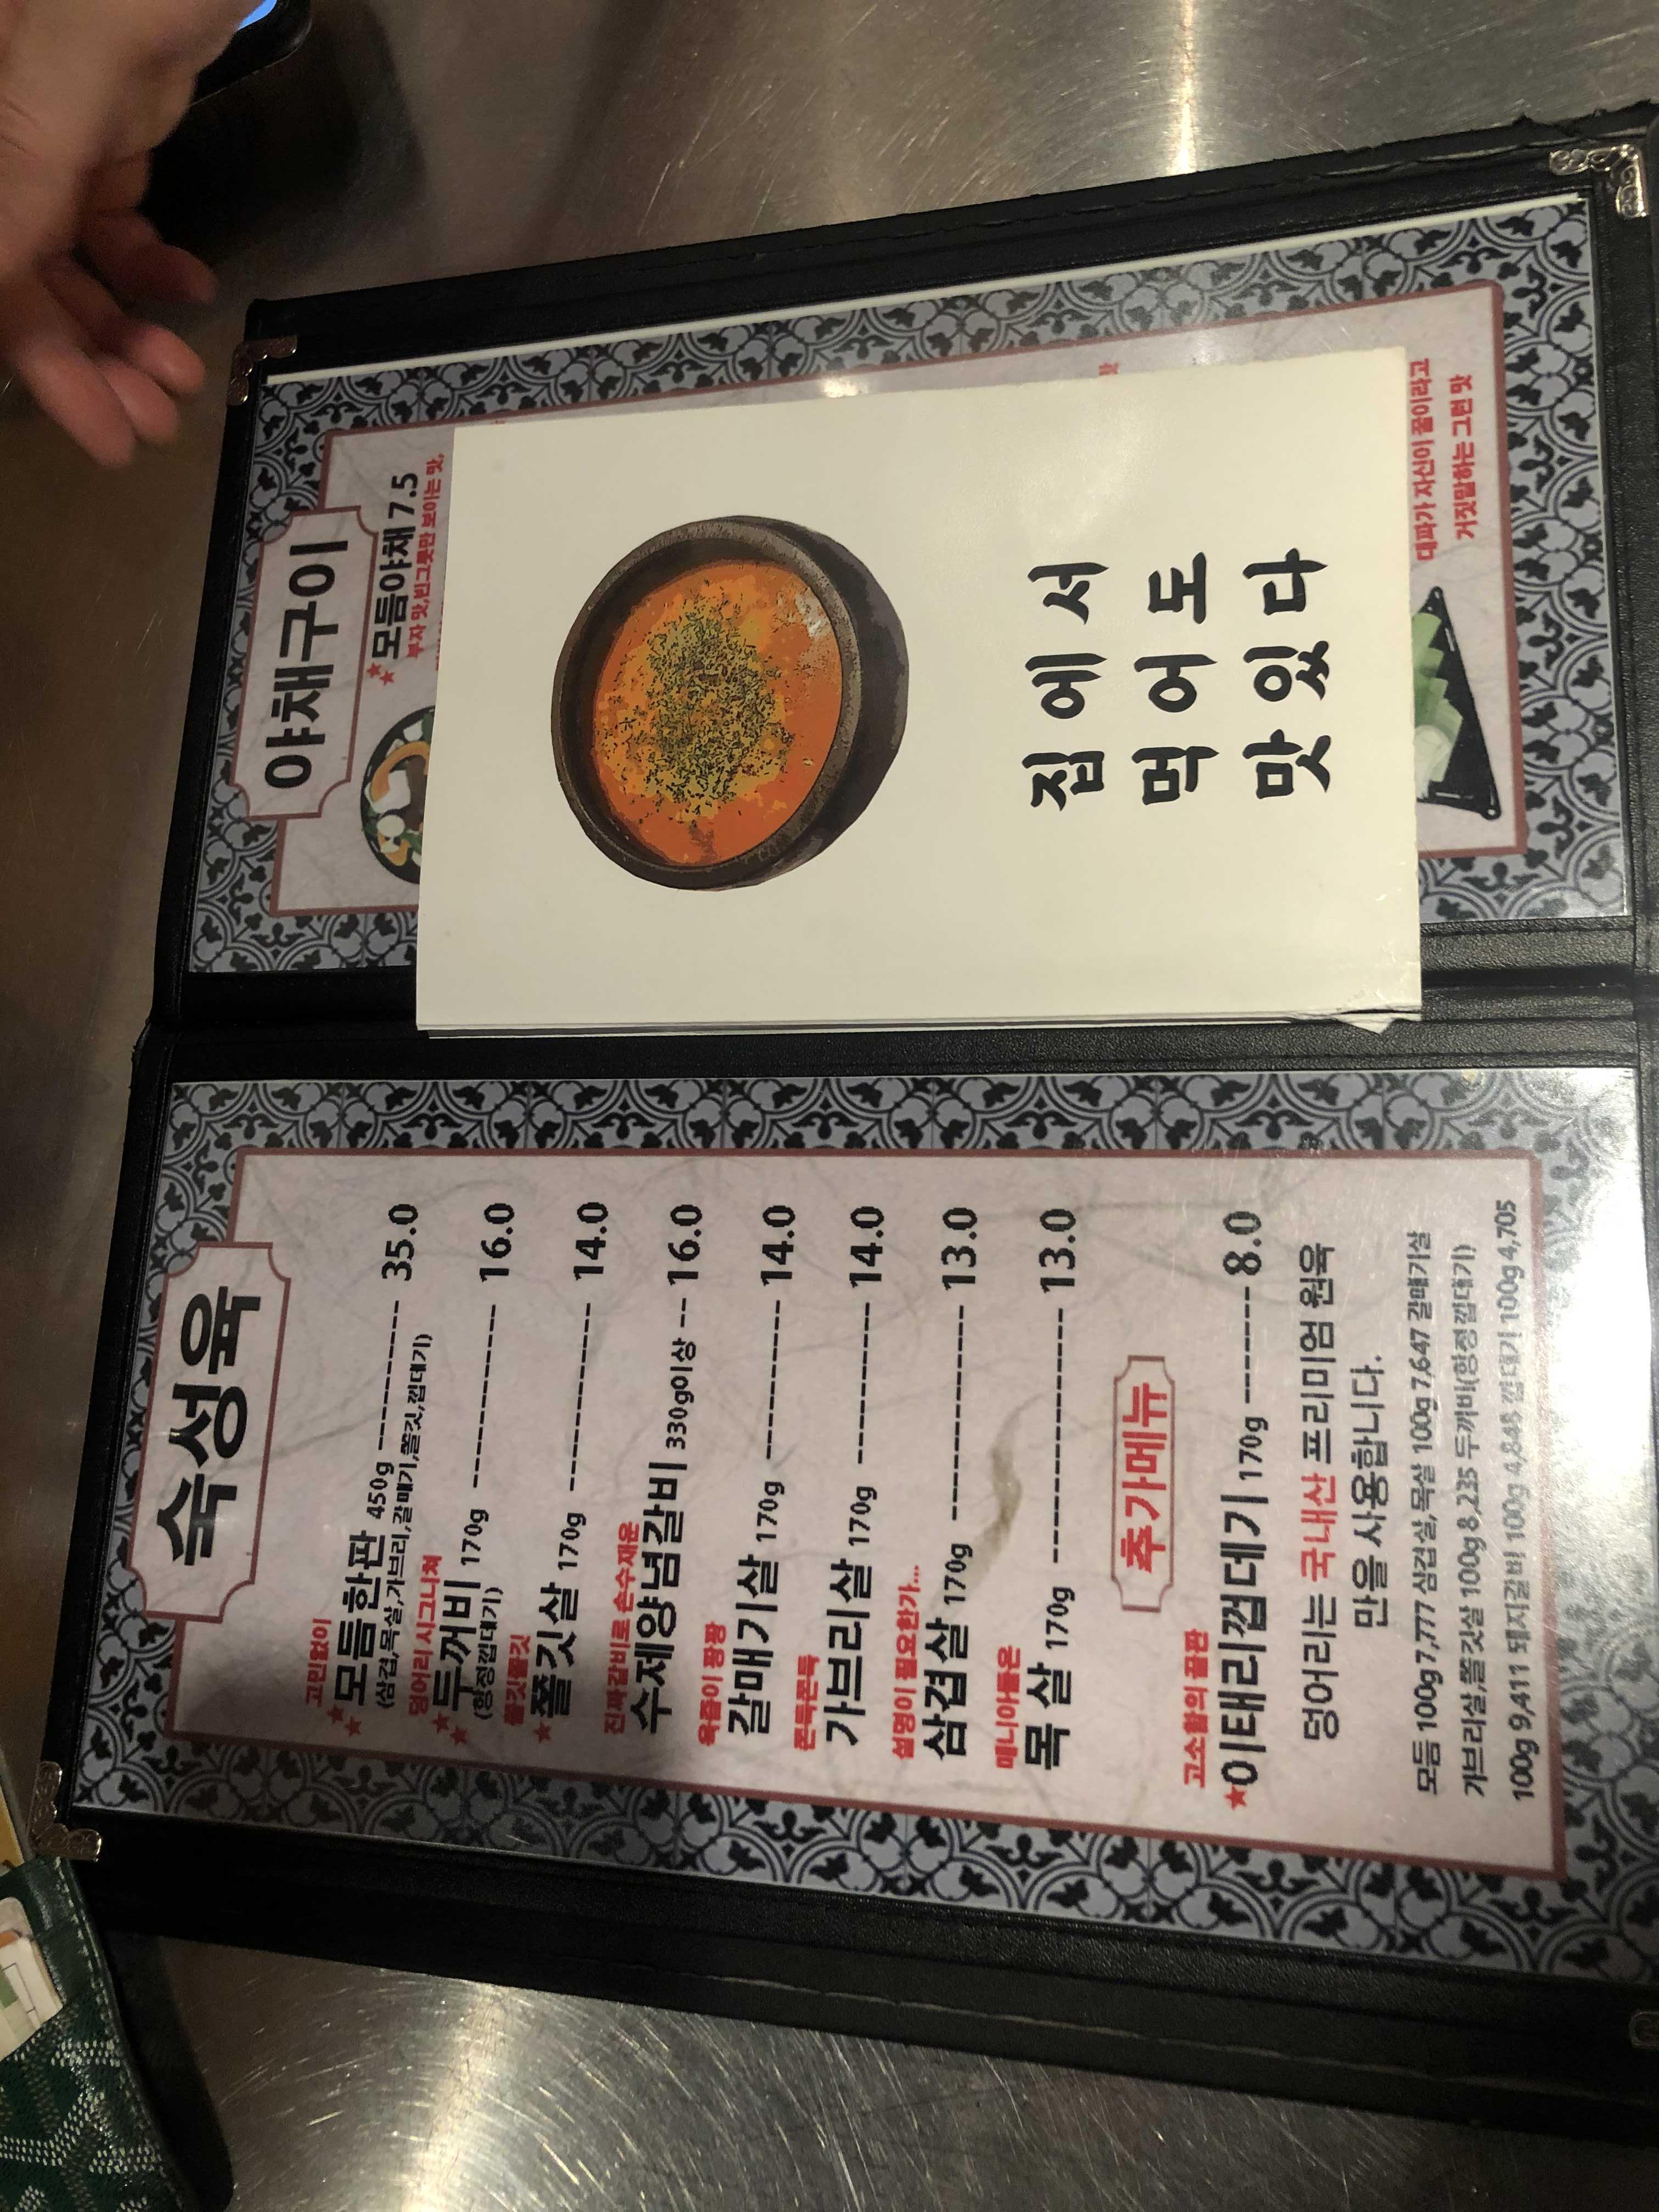 숙성육
고민없이
모듬한판 450g ---------- 35.0
(삼겹,목살,가브리,갈매기,쫄깃,껍데기)
덩어리 시그니쳐
두꺼비 170g -------------- 16.0
(항정껍데기)
쫄깃쫄깃
쫄깃살 170g -------------- 14.0
진짜갈비로 손수재운
수제양념갈비 330g이상 -- 16.0
육즙이 팡팡
갈매기살 170g ----------- 14.0
쫀득쫀득
가브리살 170g ----------- 14.0
설명이 필요한가...
삼겹살 170g -------------- 13.0
매니아들은
목살 170g ---------------- 13.0
추가메뉴
고소함의 끝판
이태리껍데기 170g ------- 8.0
덩어리는 국내산 프리미엄 원육
만을 사용합니다.
모듬 100g 7,777 삼겹살,목살 100g 7,647 갈매기살
가브리살,쫄깃살 100g 8,235 두꺼비(항정껍데기)
100g 9,411 돼지갈비 100g 4,848 껍데기 100g 4,705
야채구이
모듬야채 7.5
부자 맛,빈그릇만 보이는 맛,
맛
집에서
먹어도
맛있다
대파가 자신이 꿀이라고
거짓말하는 그런 맛